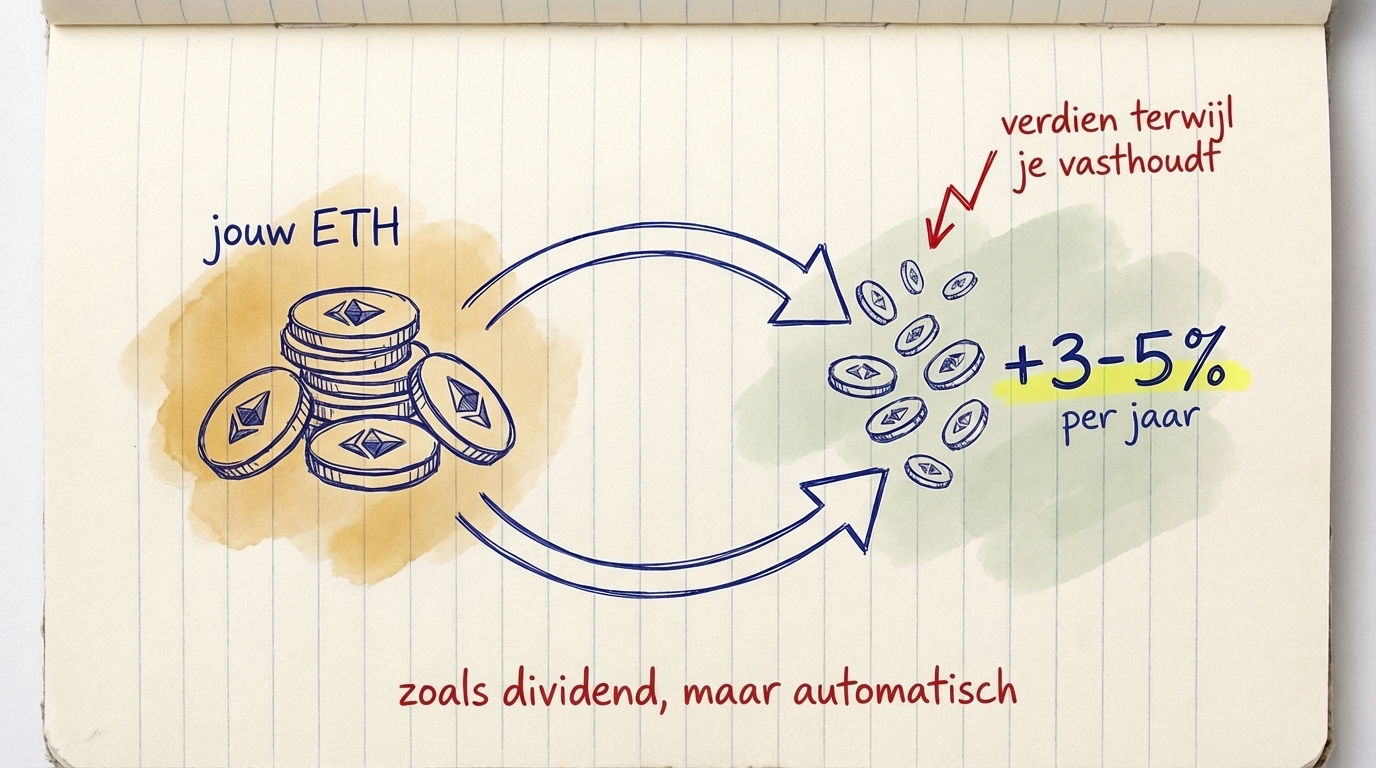 verdien terwijl
je vasthoudt
jouw ETH
+3-5%
per jaar
zoals dividend, maar automatisch